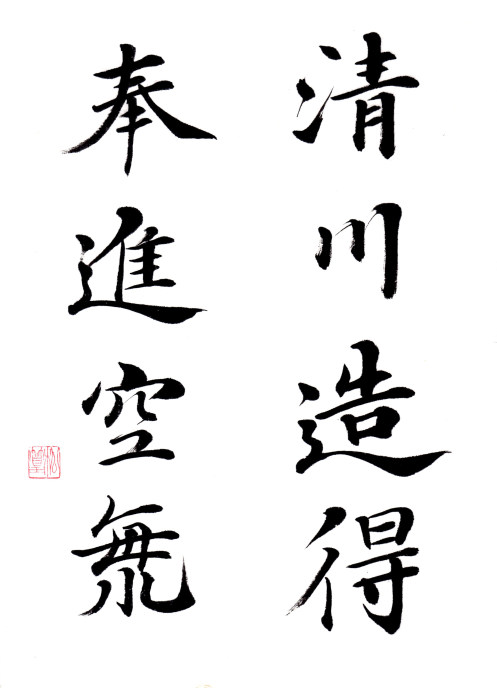 清川造得
奉進空